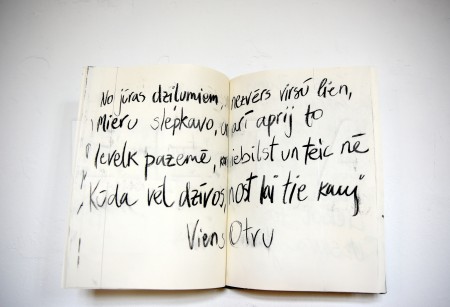 No jūras dziļumiem, nezvērs virsū lien,
Mieru slepkavo, arī aprij to
Ievelk pazemē, iebilst un teic nē
Kūda vēl dzīvos, nost lai tie kauj
Viens Otru